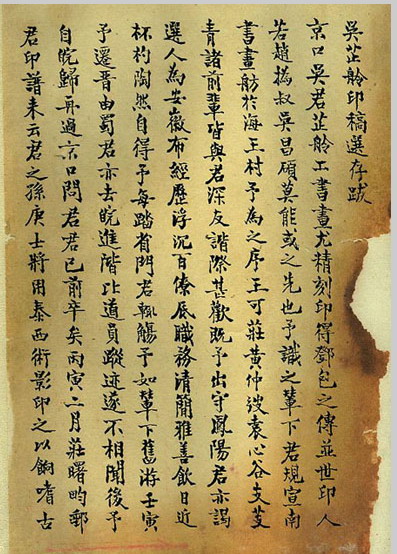 吳芷舲印稿選存跋
京口吳君芷舲工書畫尤精刻印得鄧包之傳並世印人
若趙撝叔吳昌碩莫能或之先也予識之輦下君規宣南
書畫舫於海王村予為之序王可莊黃仲弢袁心谷支芰
青諸前輩皆與君深友諧際甚歡既予出守鳳陽君亦謁
選人為安徽布經歷浮沉百僚底職務清簡雅善飲日近
杯杓陶然自得予每踏省門君輒觴予如輦下舊游壬寅
予遷晉由蜀君亦去皖進階比道員蹤迹遂不相聞後予
自皖歸再過京口問君君已前卒矣丙寅二月莊曙昀郵
君印譜來云君之孫庚士將用泰西術影印之以餉嗜古